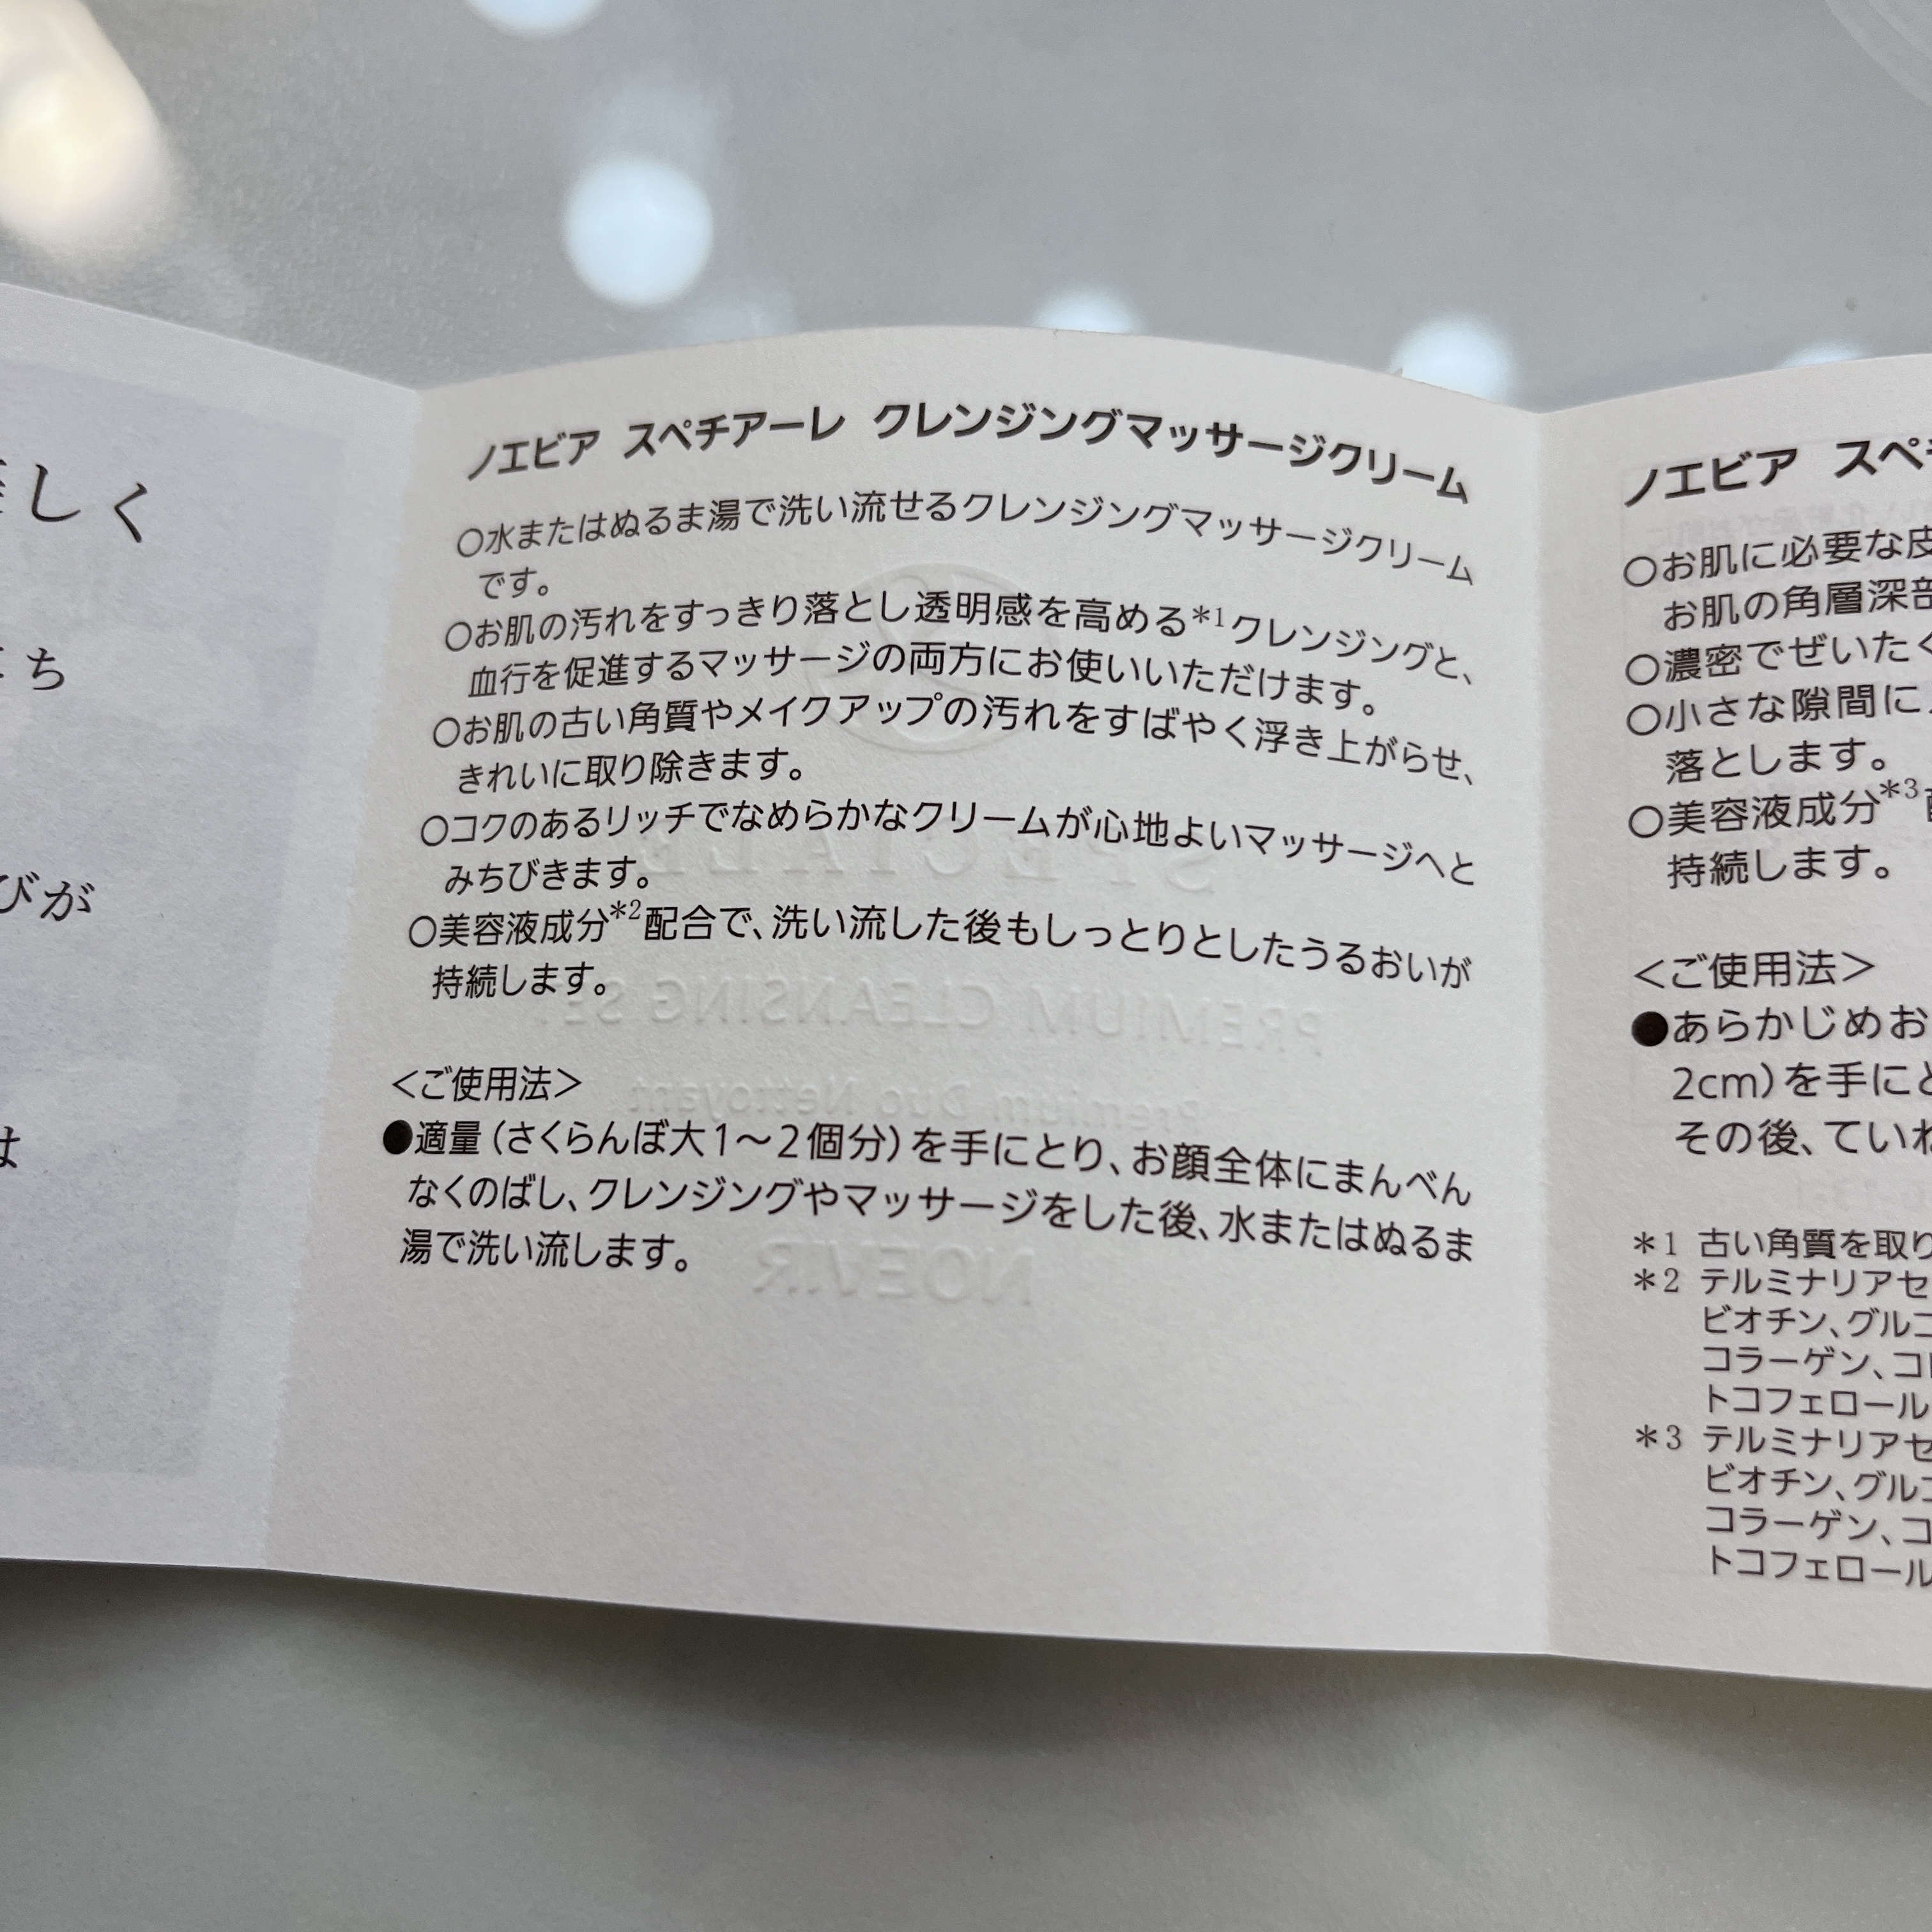 しく
ち
びが
は
ノエビア スペチアーレ クレンジングマッサージクリーム
○水またはぬるま湯で洗い流せるクレンジングマッサージクリーム
です。
○お肌の汚れをすっきり落とし透明感を高める*1クレンジングと、
血行を促進するマッサージの両方にお使いいただけます。
○お肌の古い角質やメイクアップの汚れをすばやく浮き上がらせ、
きれいに取り除きます。
○コクのあるリッチでなめらかなクリームが心地よいマッサージへと
みちびきます。
○美容液成分*2配合で、洗い流した後もしっとりとしたうるおいが
持続します。
<ご使用法>
●適量(さくらんぼ大1〜2個分)を手にとり、お顔全体にまんべん
なくのばし、クレンジングやマッサージをした後、水またはぬるま
湯で洗い流します。
SPECIALE
PREMIUM CLEANSING SE
Premium Duo Nettoyant
NOEVIR
ノエビア スペ
○お肌に必要な皮
お肌の角層深部
○濃密でぜいたく
○小さな隙間に
落とします。
○美容液成分*3
持続します。
<ご使用法>
●あらかじめお
2cm)を手にと
その後、ていね
*1 古い角質を取り
*2 テルミナリアセ
ビオチン、グルコ
コラーゲン、コ
トコフェロール
*3 テルミナリアセ
ビオチン、グルコ
コラーゲン、コ
トコフェロール